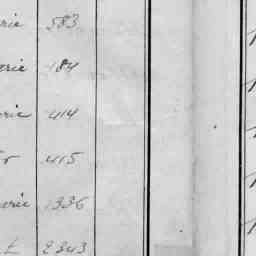 rie 583
rie 184
rie 414
r 415
arie 1336
t 2343